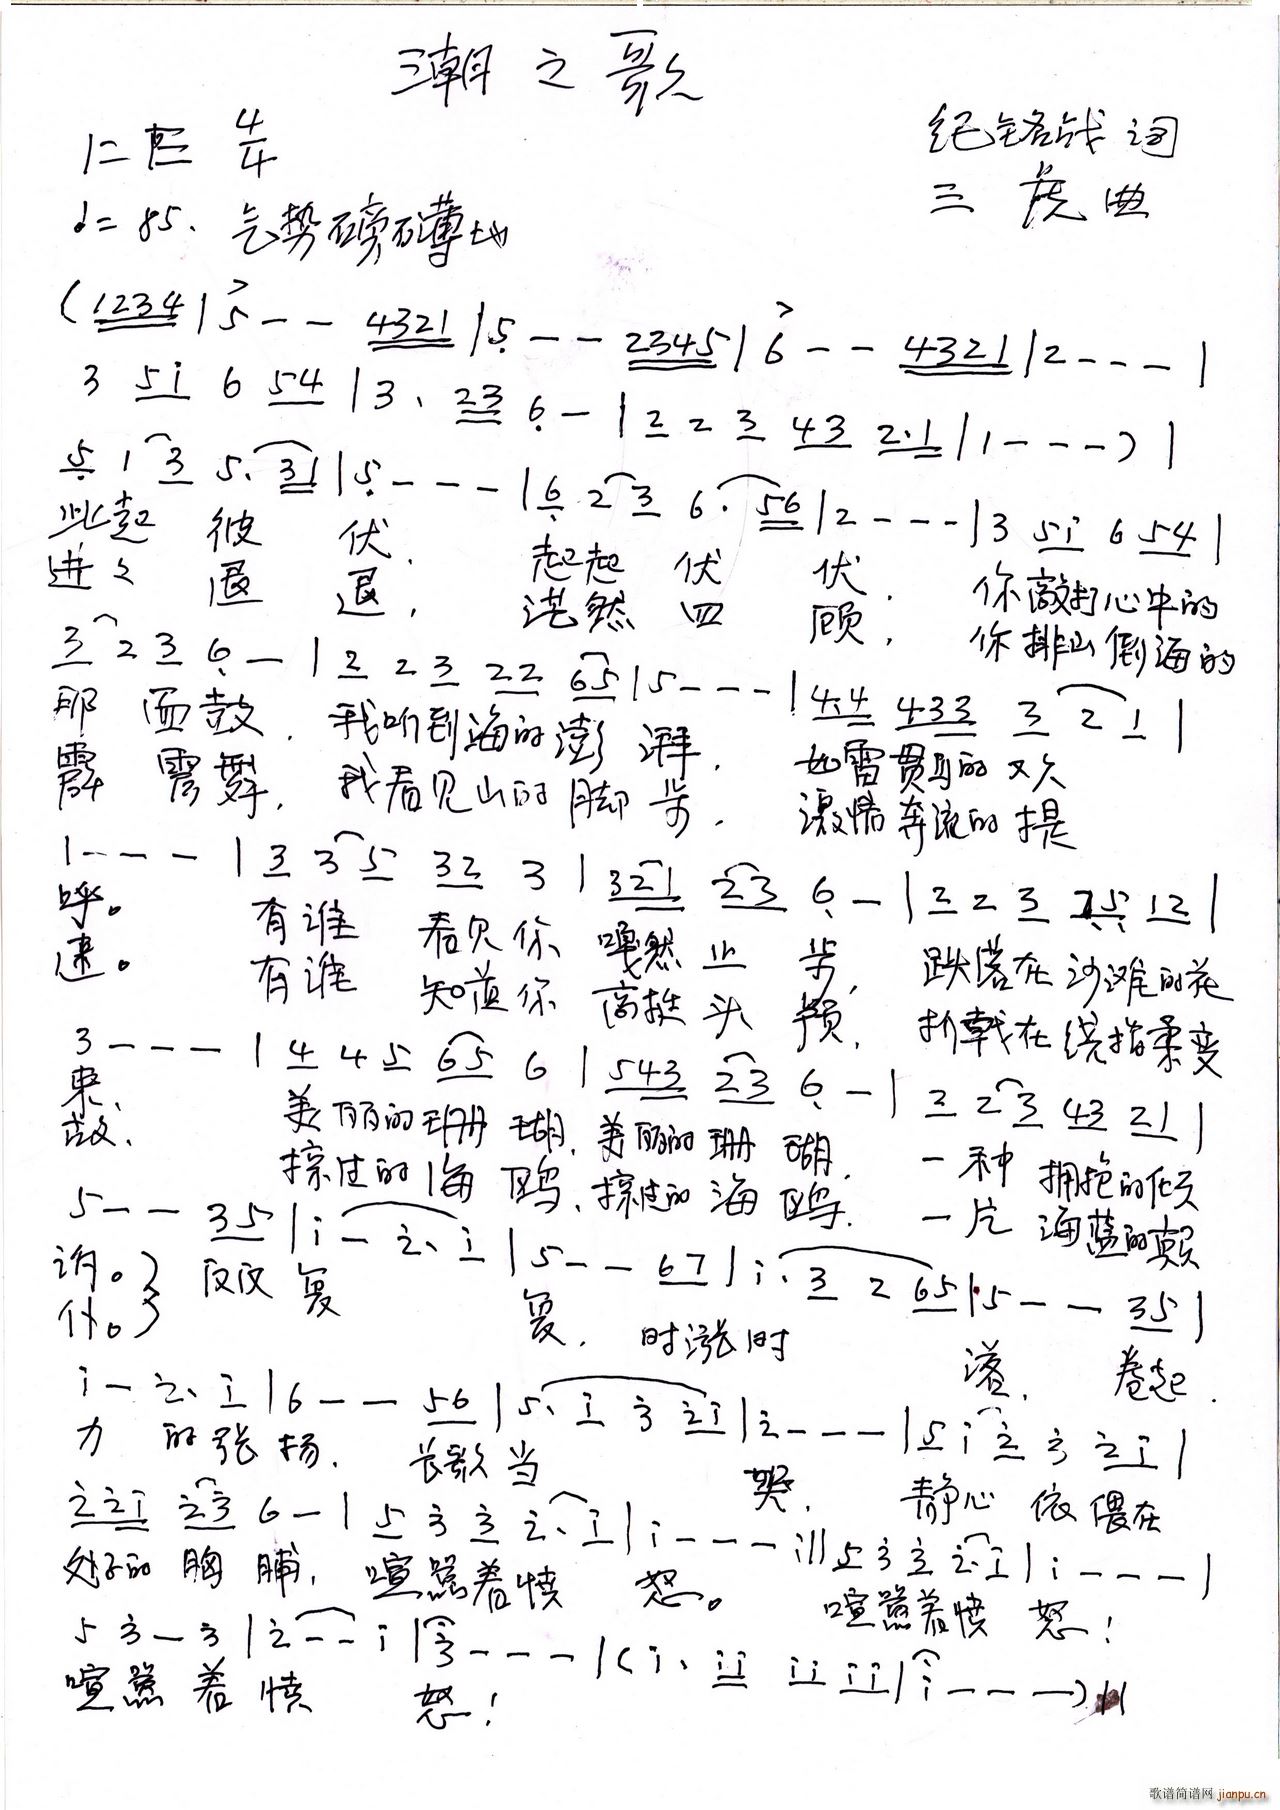 潮之歌
1=E 4/4
纪铭战词
♩=85. 气势磅礴地
三虎曲
(1234|5---4321|5---2345|6---4321|2----|
3 51 6 54|3. 23 6-|2 2 3 43 2.1|1----)|
5 1 3 5. 31|5----|6 2 3 6. 56|2----|3 51 6 54|
此起 彼 伏. 起起 伏 伏. 你敲打心中的
进进 退 退, 茫然 四 顾, 你排山倒海的
3 2 3 6-|2 2 3 22 65|5----|4.4 433 3 2 1|
那 面鼓. 我听到海的澎 湃. 如雷贯耳的欢
霹 雳舞, 我看见山的脚 步. 激情奔流的提
1----|3 3 5 32 3|321 23 6-|2 2 3 75 12|
呼。 有谁 看见你 嘎然止 步, 跌落在沙滩的花
速。 有谁 知道你 高挺头 颅, 折戟在绕指柔变
3----|4 4 5 65 6|543 23 6-|2 2 3 43 21|
束. 美丽的珊 瑚. 美丽的珊 瑚. 一种 拥抱的倾
故. 掠过的海 鸥. 掠过的海 鸥. 一片 海蓝的
5--- 35|i-2. i|5---67|i. 3 2 65|5---35|
诉。} 反反 复 复. 时涨时 落. 卷起.
仆。}
i-2. i|6---56|5. i 3 2i|2----|5 i 2 3 2i|
力 的张扬. 长歌当 哭. 静心 依偎在
22i 23 6-|5 3 3 2. i|i----:||5 3 3 2.i|i----|
处子的胸 脯, 喧嚣着愤 怒。 喧嚣着愤 怒!
5 3-3|2--i|3----|(i. ii ii ii|i----)||
喧嚣 着 愤 怒!
歌谱简谱网 jianpu.cn